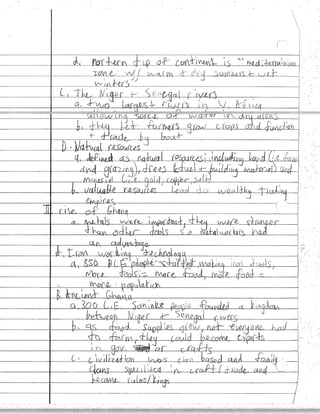 d. northern tip of continent is "mediterranian
zone w/ warm + dry summers + wet
winters"
C. The Niger + Senegal rivers
a. two largest rivers in W. Africa
allowing source of water in dry areas
b. they let farmers grow crops and function
+ trade by boat
D. Natural resources
a. defined as natural resources including land (i.e. farm
and grazing), trees (fuel + building material) and
mineral (i.e. gold, copper, salt)
b. valuable resources lead to wealthy trading
empires
II. rise of Ghana
a. metals were important, they were stronger
than other tools so metalworkers had
an advantage
A. Iron working technology
a. 350 BCE people started making iron tools,
more tools = more food, more food =
more population
B. Ancient Ghana
a. 300 C.E. Soninke people founded a kingdom
between Niger + Senegal rivers
b. as food supplies grew, not everyone had
to farm, they could become experts
in gov. or crafts
c. civilization was clan based and family
clans specilized in craft/trade and
became rulers/kings